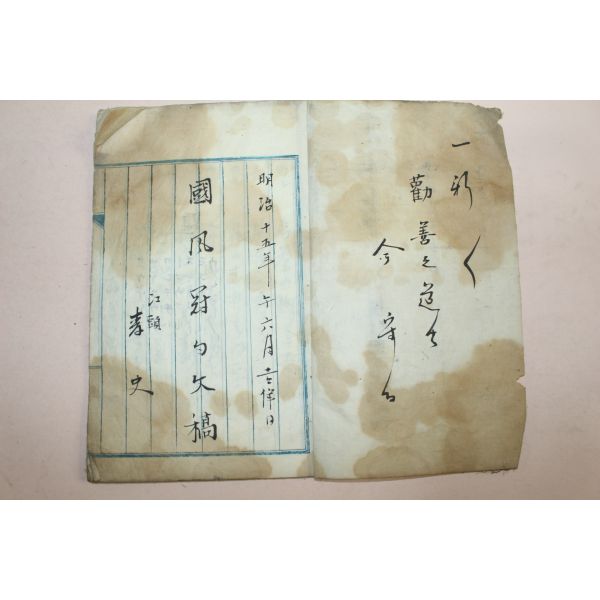 一新く
勸善之道
今
明治十五年午六月吉祥日
國風冠句文稿
江頭
春史